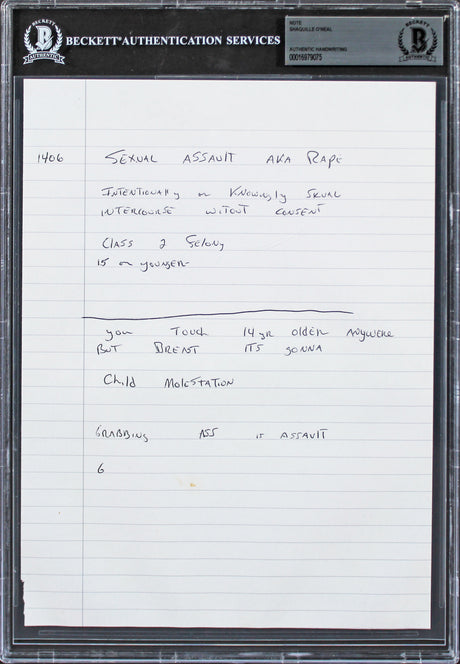 BECKETT
B
AUTHENTIC
BECKETT® AUTHENTICATION SERVICES
NOTE
SHAQUILLE O'NEAL
AUTHENTIC HANDWRITING
00016979075
BECKETT
B
AUTHENTIC
1406 SEXUAL ASSAULT AKA RAPE
INTENTIONALLY or KNOWINGLY SXUAL
INTERCOURSE WITOUT CONSENT
CLASS 2 FELONY
15 or YOUNGER
you TOUCH 14 yr OLDER ANYWERE
BUT BREAST ITS GONNA
Child MOLESTATION
GRABBING ASS is ASSAULT
6